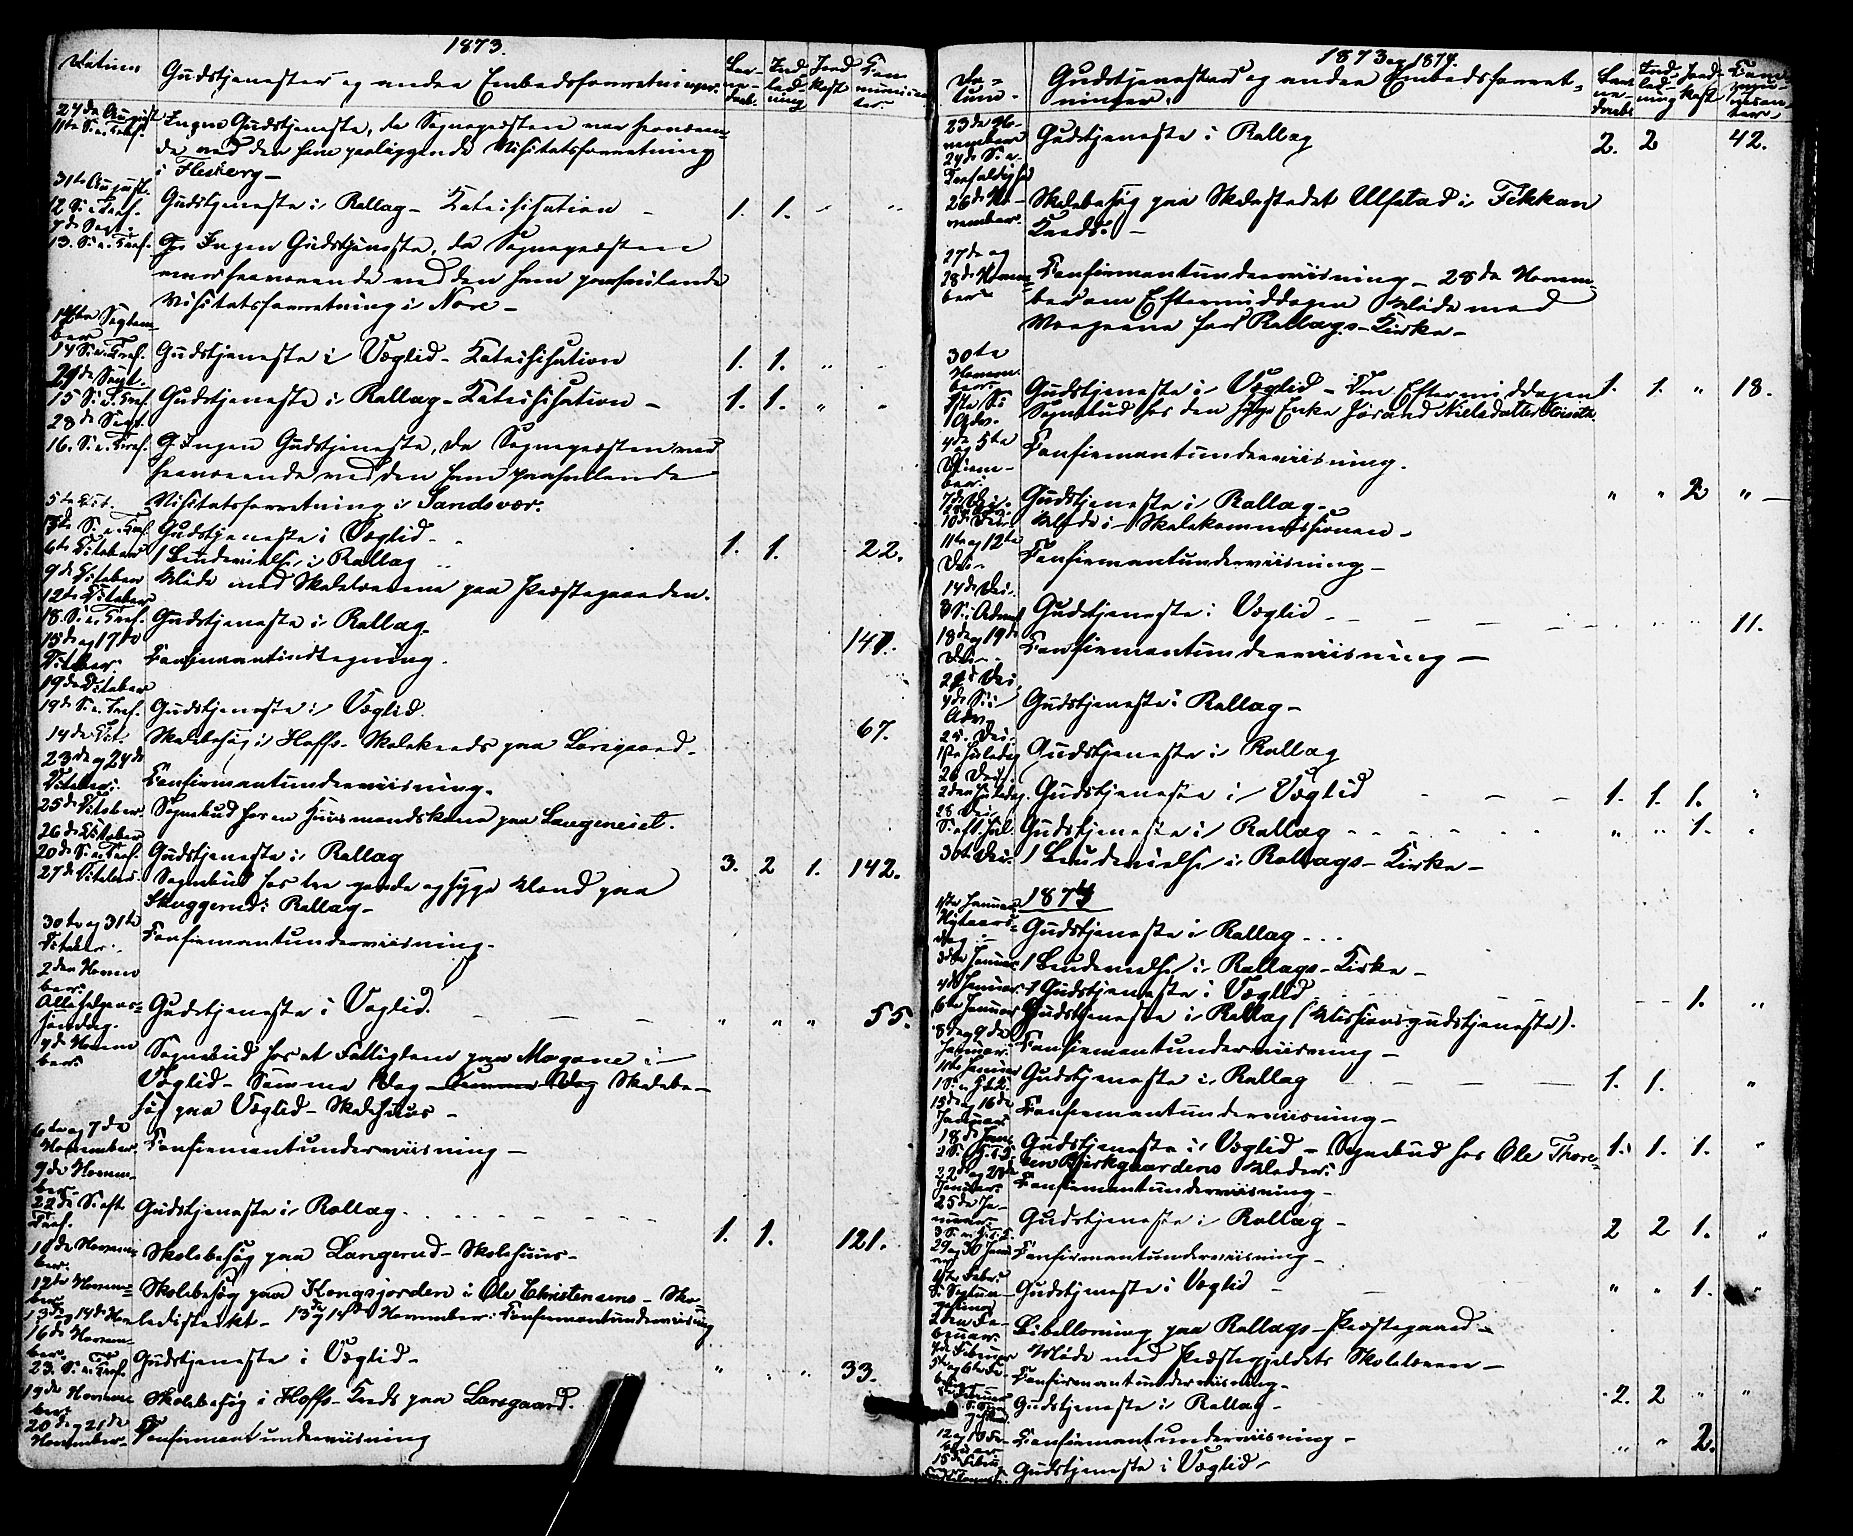 1873.
Datum Gudstjenester og andre Embedsforretninger. Barnedaab. Indledning Jordkast Communicanter.
24de August
11te S. e. Tref. Ingen Gudstjeneste, da Sognepræsten var fraværen-
de ved den ham paaliggende Visitatsforretning
i Flesberg –
31te August.
12 S. e. Tref. Gudstjeneste i Rollag – Katechisation – 1. 1. " "
7de Sept.
13. S. e. Tref. Ingen Gudstjeneste, da Sognepræsten
var fraværende ved den ham paahvilende
Visitatsforretning i Nore –
14de Septem-
ber
14 S. e. Tref. Gudstjeneste i Væglid – Katechisation 1. 1. " "
21de Sept.
15 S. e. Tref. Gudstjeneste i Rollag – Katechisation – 1. 1. " "
28de Sept.
16. S. e. Tref. Ingen Gudstjeneste, da Sognepræsten var
fraværende ved den ham paahvilende
Visitatsforretning i Sandsvær.
5te Oct.
S. e. Tref. Gudstjeneste i Væglid – 1. 1. 22.
6te October 1 Brudevielse i Rollag
9de October Møde med Skolelærerne paa Præstegaarden.
12te October
18. S. e. Tref. Gudstjeneste i Rollag – 141.
15de og 17de
October. Confirmantindtegning.
19de October
19de S. e. Tref. Gudstjeneste i Væglid. 67.
14de Oct. Skolebesøg i Hoffs – Skolekreds paa Larsgaard –
23de og 24de
October. Confirmantunderviisning.
25de October. Sognebud hos en Huusmandskone paa Langeneiet.
26de October
20de S. e. Tref. Gudstjeneste i Rollag 3. 2 1. 142.
27de October Sognebud hos tre gamle og syge Mænd paa
Skaggerud i Rollag –
30te og 31te
October. Confirmantunderviisning.
2den Novem
ber.
Allehelgens-
søndag. Gudstjeneste i Væglid. " " " 55.
4de Novem
ber. Sognebud hos et Fattiglem paa Mogane i
Væglid – Samme Dag – Skolebe-
søg paa Væglid – Skolehuus –
6te og 7de
November. Confirmantunderviisning –
9de Novem-
ber.
22de S. eft.
Tref. Gudstjeneste i Rollag. 1. 1. 121.
11de Novem-
ber. Skolebesøg paa Langerud – Skolehuus –
12de Novem-
ber Skolebesøg paa Kongsjorden i Ole Christensens – Sko-
13de og 14de Nov ledistrikt – 13de og 14de November Confirmantunderviisning
16de Novem-
ber.
23. S. e. Tref. Gudstjeneste i Væglid – " " " 33.
19de Novem
ber. Skolebesøg i Hoffs – Kreds paa Larsgaard.
20de og 21de
November – Confirmantunderviisning
1873 og 1874.
Da-
tum. Gudstjenester og andre Embedsforret-
ninger. Barnedaab Indledning Jordkast Communicanter
23de No-
vember
24de S. e.
Trefoldighed Gudstjeneste i Rollag 2. 2 42.
26de No-
vember. Skolebesøg paa Skolestedet Ulfstad i Fekkan
Kreds. –
27de og
28de Novem-
ber Confirmantunderviisning – 28de Novem-
ber om Eftermiddagen Møde med
Værgerne for Rollags – Kirke –
30te
Novem-
ber.
1ste S. i
Adv. Gudstjeneste i Væglid – Om Eftermiddagen 1. 1. " 18.
Sognebud hos den syge Enke Jørand Nielsdatter
4de 5te
Decem-
ber: Confirmantunderviisning.
7de Dec. Gudstjeneste i Rollag – " " 2 " –
10de Dec. Møde i Skolekommissionen –
11te og 12te
Dec – Confirmantunderviisning –
14de Dec.
3 S. i Advent Gudstjeneste i Væglid – 11.
18de og 19de
Dec – Confirmantunderviisning –
21de Dec.
4de S. i
Adv. Gudstjeneste i Rollag –
25. Dec.
1ste Juledag Gudstjeneste i Rollag
26 Dec.
2den Juledag. Gudstjeneste i Væglid – – – 1. 1. 1. "
28 Dec.
S. eft. Jul. Gudstjeneste i Rollag " " 1. "
30te Dec. 1 Brudevielse i Rollags – Kirke –
1874
1ste Januar
Nytaars-
dag – Gudstjeneste i Rollag
3die Januar. 1 Brudevielse i Rollags – Kirke –
4de Januar. Gudstjeneste i Væglid 1. "
6te Januar Gudstjeneste i Rollag (Missionsgudstjeneste).
8de og 9de
Januar. Confirmantunderviisning –
11te Januar
1 S. e. H.3.K. Gudstjeneste i Rollag 1. 1. "
15de og 16de
Januar Confirmantunderviisning –
18de Jan.
2 S. e. H.3.K. Gudstjeneste i Væglid – Sognebud hos Ole Thore- 1. 1. 1. "
sen Bjerkgaardens Moder.
22de og 23de
Januar. Confirmantunderviisning –
25de Ja-
nuar.
3 S. e. H.3.K. Gudstjeneste i Rollag – 2 2 1. "
29 og 30 Janu
ar Confirmantunderviisning –
1ste Febr.
S. Septua-
gesima Gudstjeneste i Væglid – " " 1.
2den Fe-
bruar. Bibellæsning paa Rollags – Præstegaard –
4de Februar Møde med Præstegjeldets Skolelærere –
5te og 6te Fe-
bruar Confirmantunderviisning –
Gudstjeneste i Rollag – 2. 2 " "
12 og 13de
Februar Confirmantunderviisning –
15de Februar
Gudstjeneste i Væglid – " " 2.